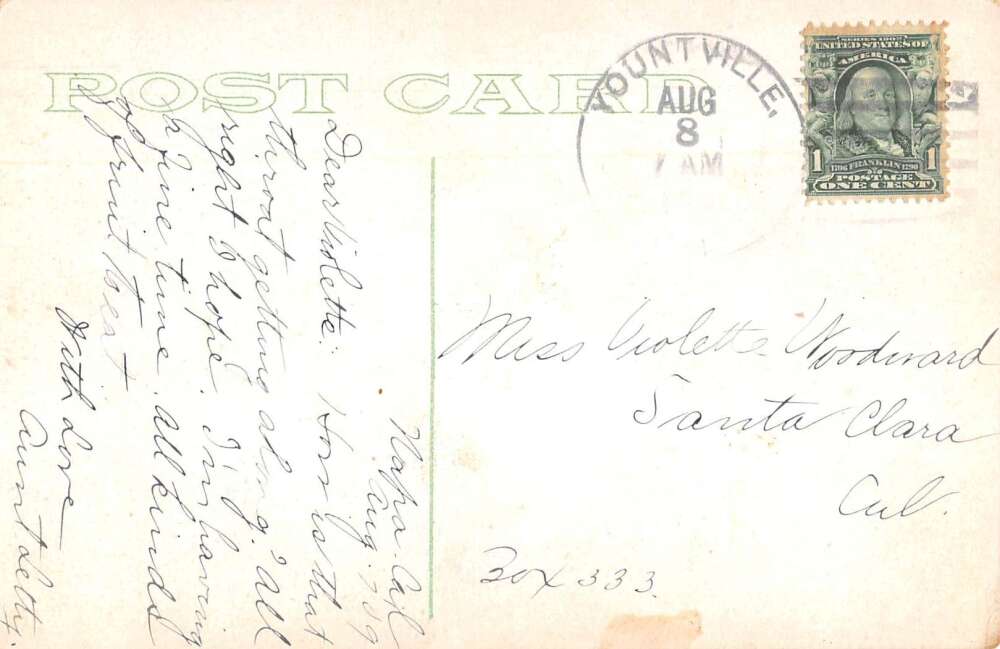 POST CARD
YOUNTVILLE,
AUG
8
7 AM
SERIES 1902
UNITED STATES OF
AMERICA
1
1706 FRANKLIN 1790
1
POSTAGE
ONE CENT
Napa. Cal
Aug. 7, 09
Dear Violette: How is that
throat getting along? All
right I hope. I'm having
a fine time. All kinds
of fruit to eat
With Love
Aunt Letty.
Miss Violette Woodward
Santa Clara
Cal.
Box 333.